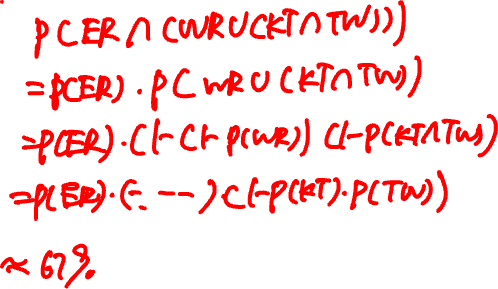 P(ER∩(WR∪(KT∩TW)))
=P(ER)·P(WR∪(KT∩TW))
=P(ER)·(1-(1-P(WR))(1-P(KT∩TW))
=P(ER)·(-. --)(1-P(KT)·P(TW))
≈67%